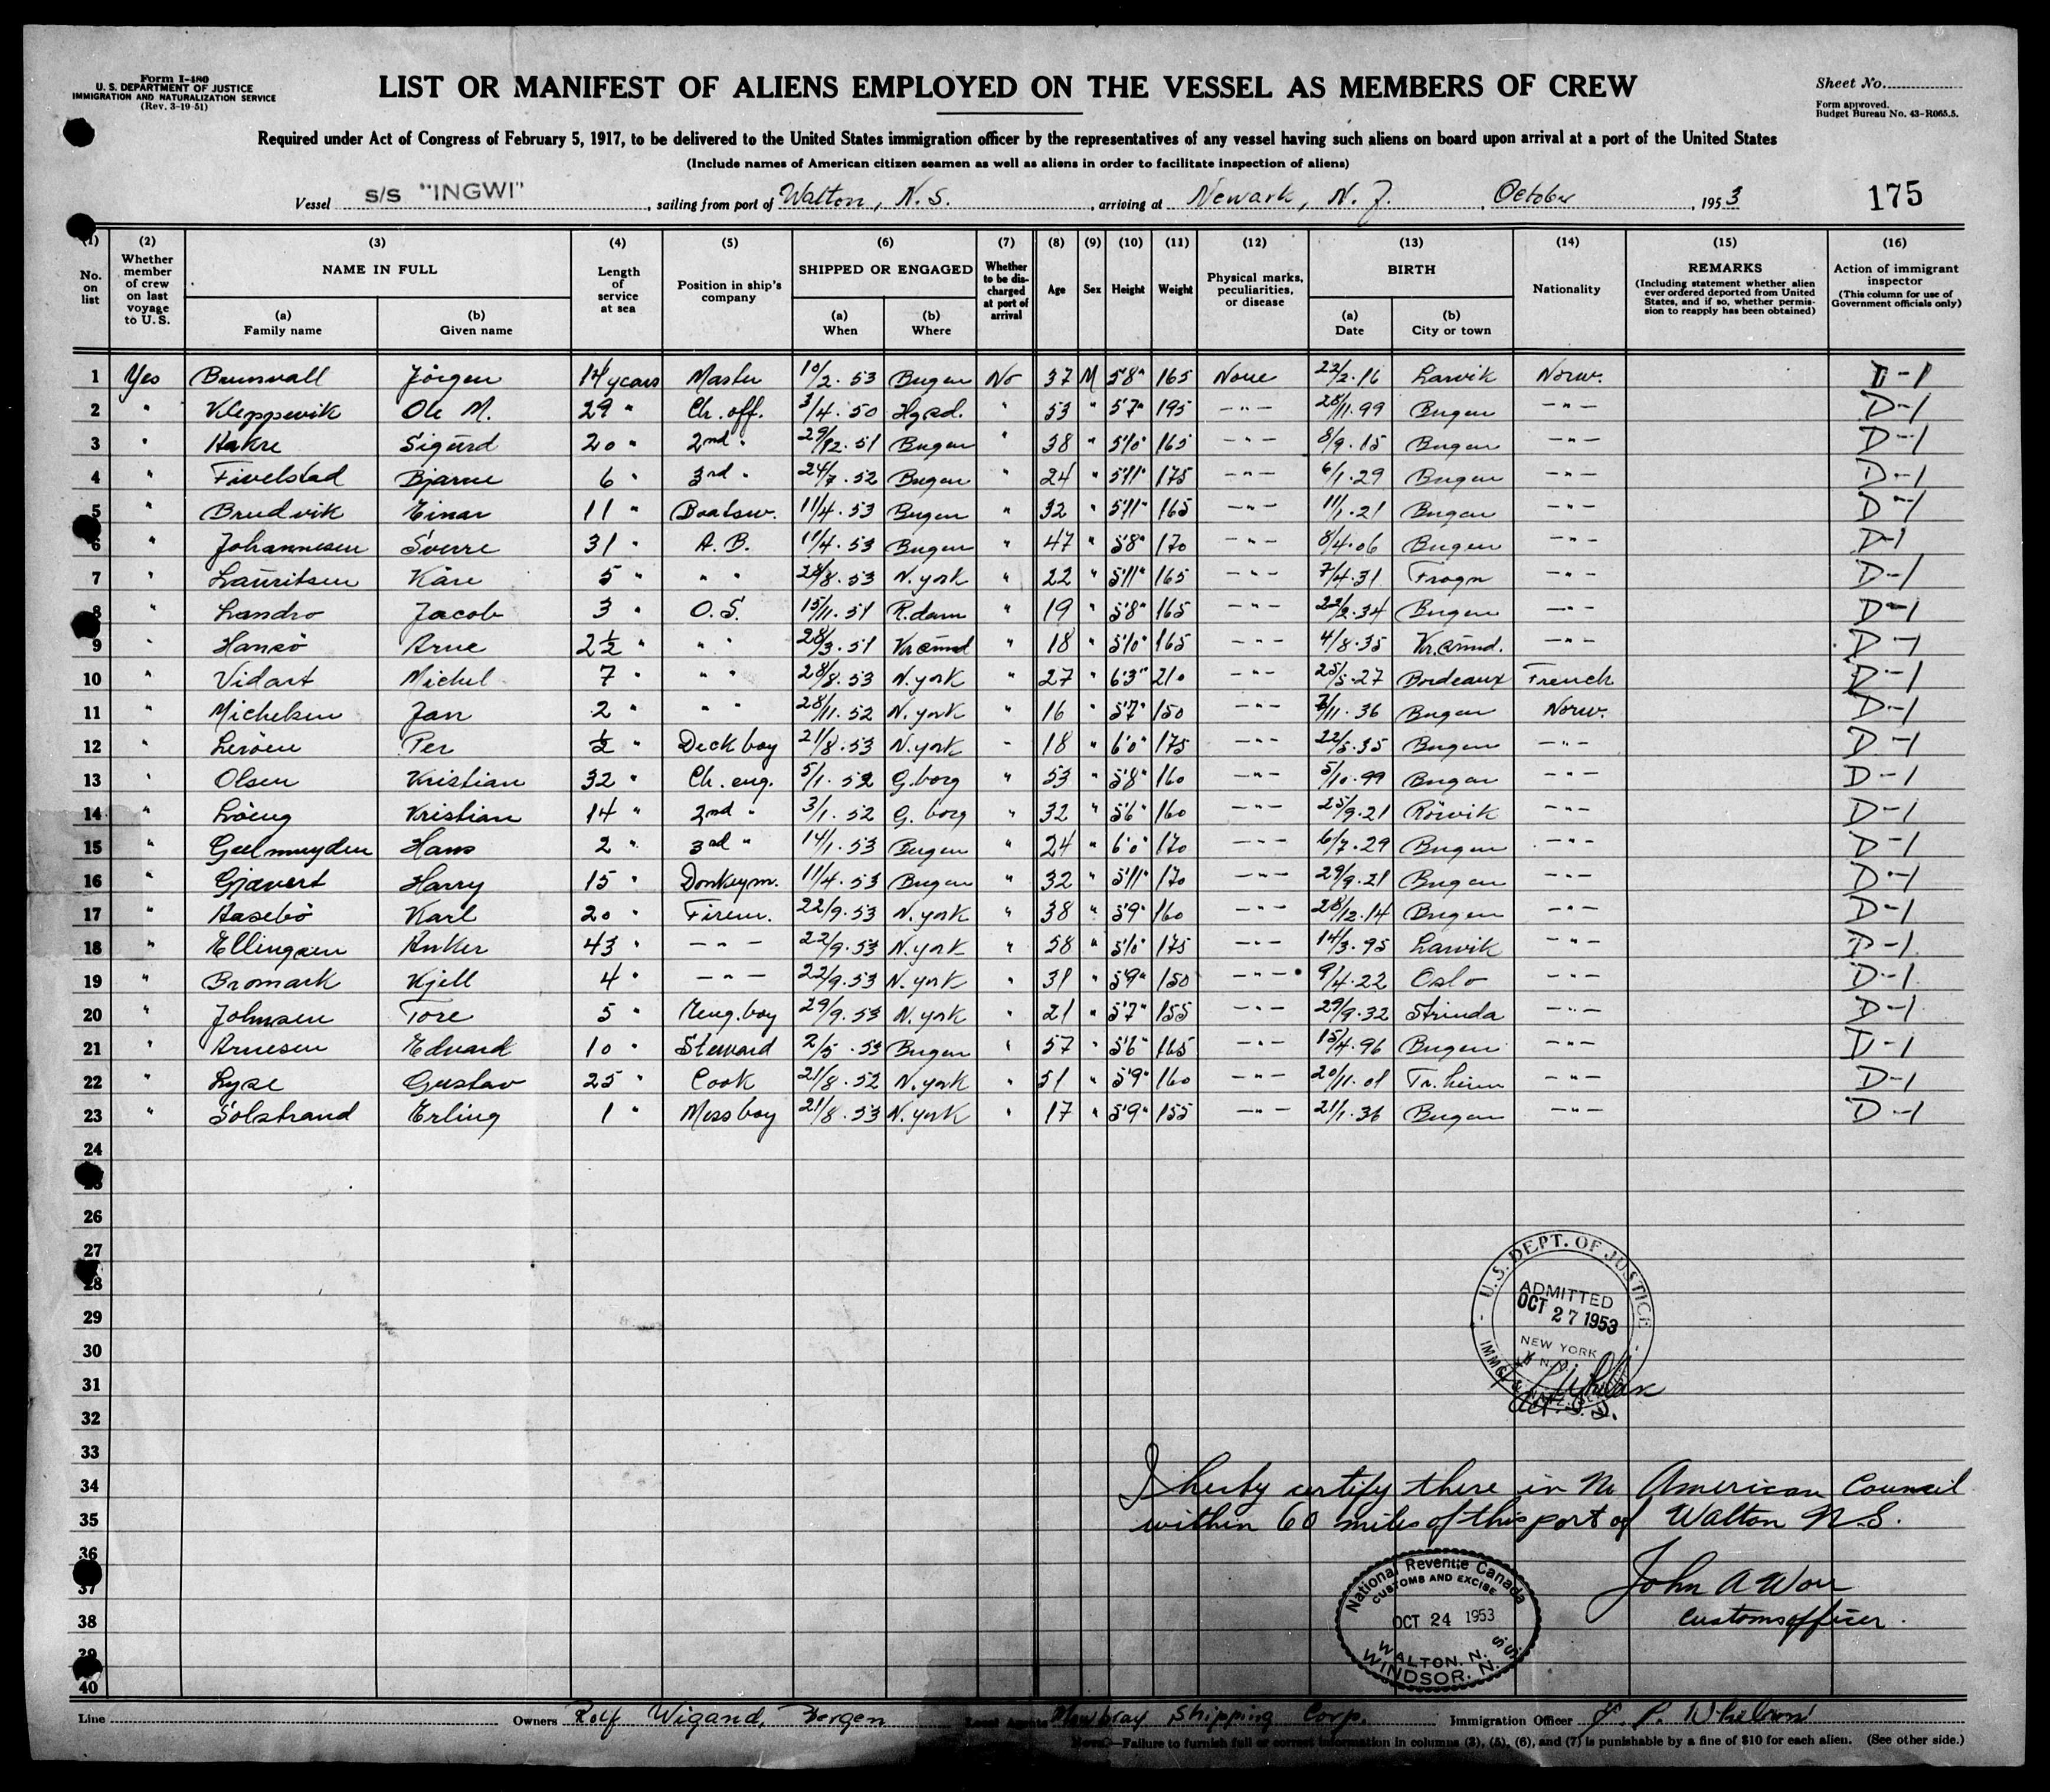 Form I-480
U. S. DEPARTMENT OF JUSTICE
IMMIGRATION AND NATURALIZATION SERVICE
(Rev. 3-19-51)
LIST OR MANIFEST OF ALIENS EMPLOYED ON THE VESSEL AS MEMBERS OF CREW
Sheet No.
Form approved.
Budget Bureau No. 43-R065.5.
Required under Act of Congress of February 5, 1917, to be delivered to the United States immigration officer by the representatives of any vessel having such aliens on board upon arrival at a port of the United States
(Include names of American citizen seamen as well as aliens in order to facilitate inspection of aliens)
Vessel S/S "INGWI", sailing from port of Walton, N.S., arriving at Newark, N.J. October, 1953 175
(1) (2) (3) (4) (5) (6) (7) (8) (9) (10) (11) (12) (13) (14) (15) (16)
No. on list
Whether member of crew on last voyage to U. S.
NAME IN FULL
(a) Family name
(b) Given name
Length of service at sea
Position in ship's company
SHIPPED OR ENGAGED
(a) When
(b) Where
Whether to be discharged at port of arrival
Age
Sex
Height
Weight
Physical marks, peculiarities, or disease
BIRTH
(a) Date
(b) City or town
Nationality
REMARKS
(Including statement whether alien ever ordered deported from United States, and if so, whether permission to reapply has been obtained)
Action of immigrant inspector
(This column for use of Government officials only)
1 Yes Brunvall Jörgen 14 years Master 10/2.53 Bergen No 37 M 5'8" 165 None 22/2.16 Larvik Norw. D-1
2 " Kleppevik Ole M. 29 " Ch. off. 3/4.50 Hgsd. " 53 " 5'7" 195 -"- 28/11.99 Bergen -"- D-1
3 " Hakre Sigurd 20 " 2nd " 29/12.51 Bergen " 38 " 5'10" 165 -"- 8/9.15 Bergen -"- D-1
4 " Fivelstad Bjarne 6 " 3rd " 24/7.52 Bergen " 24 " 5'11" 175 -"- 6/1.29 Bergen -"- D-1
5 " Brudvik Einar 11 " Boatsw. 11/4.53 Bergen " 32 " 5'11" 165 -"- 11/1.21 Bergen -"- D-1
6 " Johannesen Sverre 31 " A.B. 11/4.53 Bergen " 47 " 5'8" 170 -"- 8/4.06 Bergen -"- D-1
7 " Lauritsen Kåre 5 " " " 28/8.53 N.york " 22 " 5'11" 165 -"- 7/4.31 Frogn -"- D-1
8 " Landro Jacob 3 " O.S. 15/11.51 R.dam " 19 " 5'8" 165 -"- 22/2.34 Bergen -"- D-1
9 " Hansö Arne 2½ " " 28/3.51 Kr.sund " 18 " 5'10" 165 -"- 4/8.35 Kr.sund. -"- D-1
10 " Vidart Michel 7 " " " 28/8.53 N.york " 27 " 6'3" 210 -"- 25/5.27 Bordeaux French D-1
11 " Michelsen Jan 2 " " " 28/11.52 N.york " 16 " 5'7" 150 -"- /11.36 Bergen Norw. D-1
12 " Leröen Per ½ " Deck boy 21/8.53 N.york " 18 " 6'0" 175 -"- 22/5.35 Bergen -"- D-1
13 " Olsen Kristian 32 " Ch. eng. 5/1.52 G.borg " 53 " 5'8" 160 -"- 5/10.99 Bergen -"- D-1
14 " Löeng Kristian 14 " 2nd " 3/1.52 G.borg " 32 " 5'6" 160 -"- 25/9.21 Rörvik -"- D-1
15 " Geelmuyden Hans 2 " 3rd " 14/1.53 Bergen " 24 " 6'0" 170 -"- 6/7.29 Bergen -"- D-1
16 " Gjævert Harry 15 " Donkeym. 11/4.53 Bergen " 32 " 5'11" 170 -"- 29/9.21 Bergen -"- D-1
17 " Aasebö Karl 20 " Firem. 22/9.53 N.york " 38 " 5'9" 160 -"- 28/12.14 Bergen -"- D-1
18 " Ellingsen Anker 43 " -"- 22/9.53 N.york " 58 " 5'10" 175 -"- 14/3.95 Larvik -"- D-1
19 " Bromark Kjell 4 " -"- 22/9.53 N.york " 31 " 5'9" 150 -"- 9/4.22 Oslo -"- D-1
20 " Johnsen Tore 5 " Eng.boy 29/9.53 N.york " 21 " 5'7" 155 -"- 29/9.32 Strinda -"- D-1
21 " Arnesen Edvard 10 " Steward 2/5.53 Bergen " 57 " 5'6" 165 -"- 15/4.96 Bergen -"- D-1
22 " Lyse Gustav 25 " Cook 21/8.52 N.york " 51 " 5'9" 160 -"- 20/11.01 Tr.heim -"- D-1
23 " Solstrand Erling 1 " Messboy 21/8.53 N.york " 17 " 5'9" 155 -"- 21/1.36 Bergen -"- D-1
24
26
27
28
29
30
31
32
33
34
35
36
37
38
39
40
U.S. DEPT. OF JUSTICE
ADMITTED
OCT 27 1953
NEW YORK
I herby certify there in no American Council
within 60 miles of this port of Walton N.S.
John A Worr
Customs officer.
National Revenue Canada
CUSTOMS AND EXCISE
OCT 24 1953
WALTON, N.S.
WINDSOR, N.S.
Line Owners Rolf Wigand, Bergen Local Agents Mowbray Shipping Corp. Immigration Officer J. P. Whelan
NOTE.—Failure to furnish full or correct information in columns (3), (5), (6), and (7) is punishable by a fine of $10 for each alien. (See other side.)